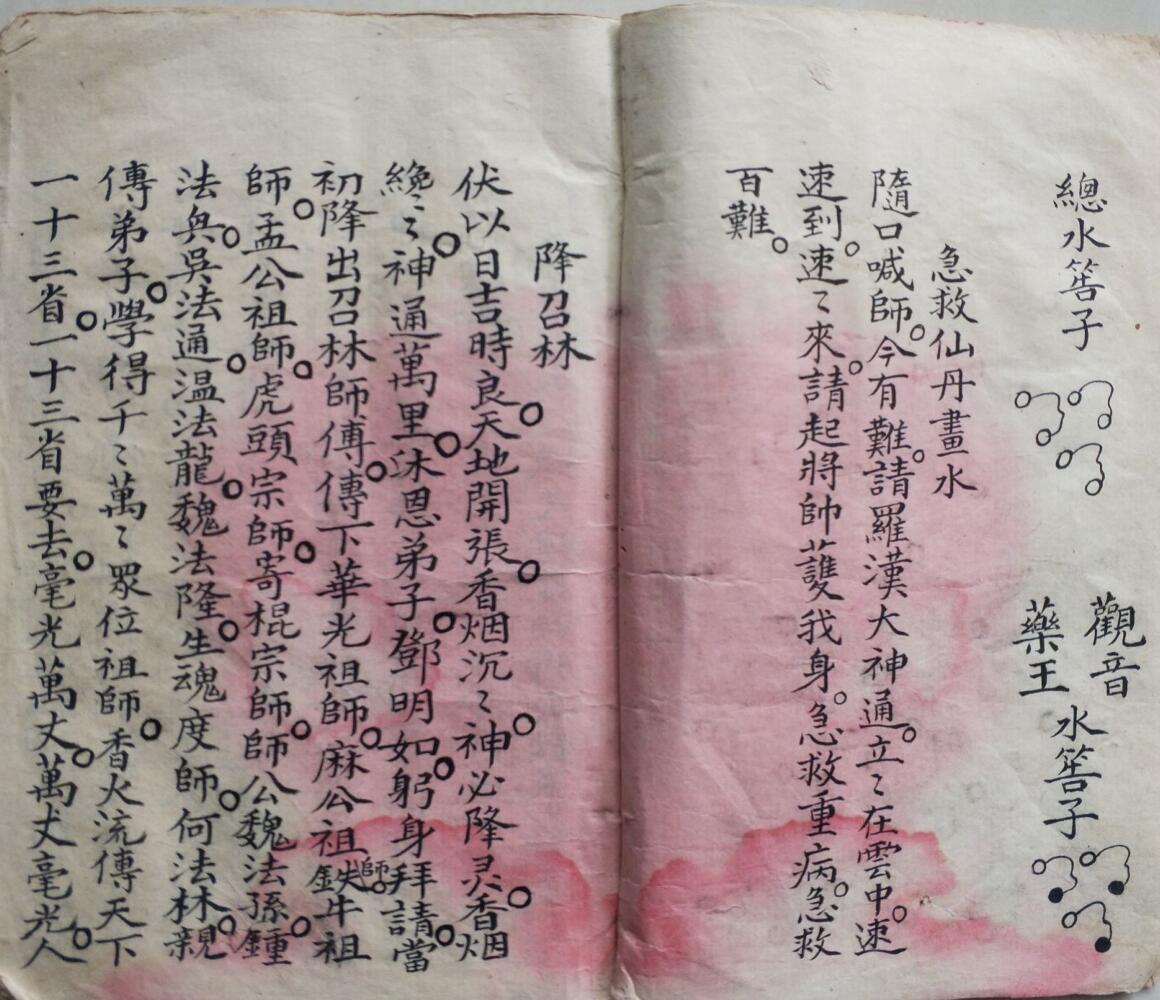 總水筶子
觀音
藥王
水筶子
急救仙丹畫水
隨口喊師。今有難。請羅漢大神通。立〻在雲中。速
速到。速〻來。請起將帥護我身。急救重病。急救
百難。
降召林
伏以日吉時良。天地開張。香烟沉〻。神必降灵。香烟
纔〻。神通萬里。沐恩弟子。鄧明如。躬身拜請。當
初降出召林師傅。傳下華光祖師。麻公祖師。鉄牛祖
師。孟公祖師。虎頭宗師。寄棍宗師。師公魏法孫。鍾
法兵。吳法通。温法龍。魏法隆。生魂度師。何法林。親
傳弟子。學得千〻萬〻眾位祖師。香火流傳天下
一十三省。一十三省要去。毫光萬丈。萬丈毫光。人